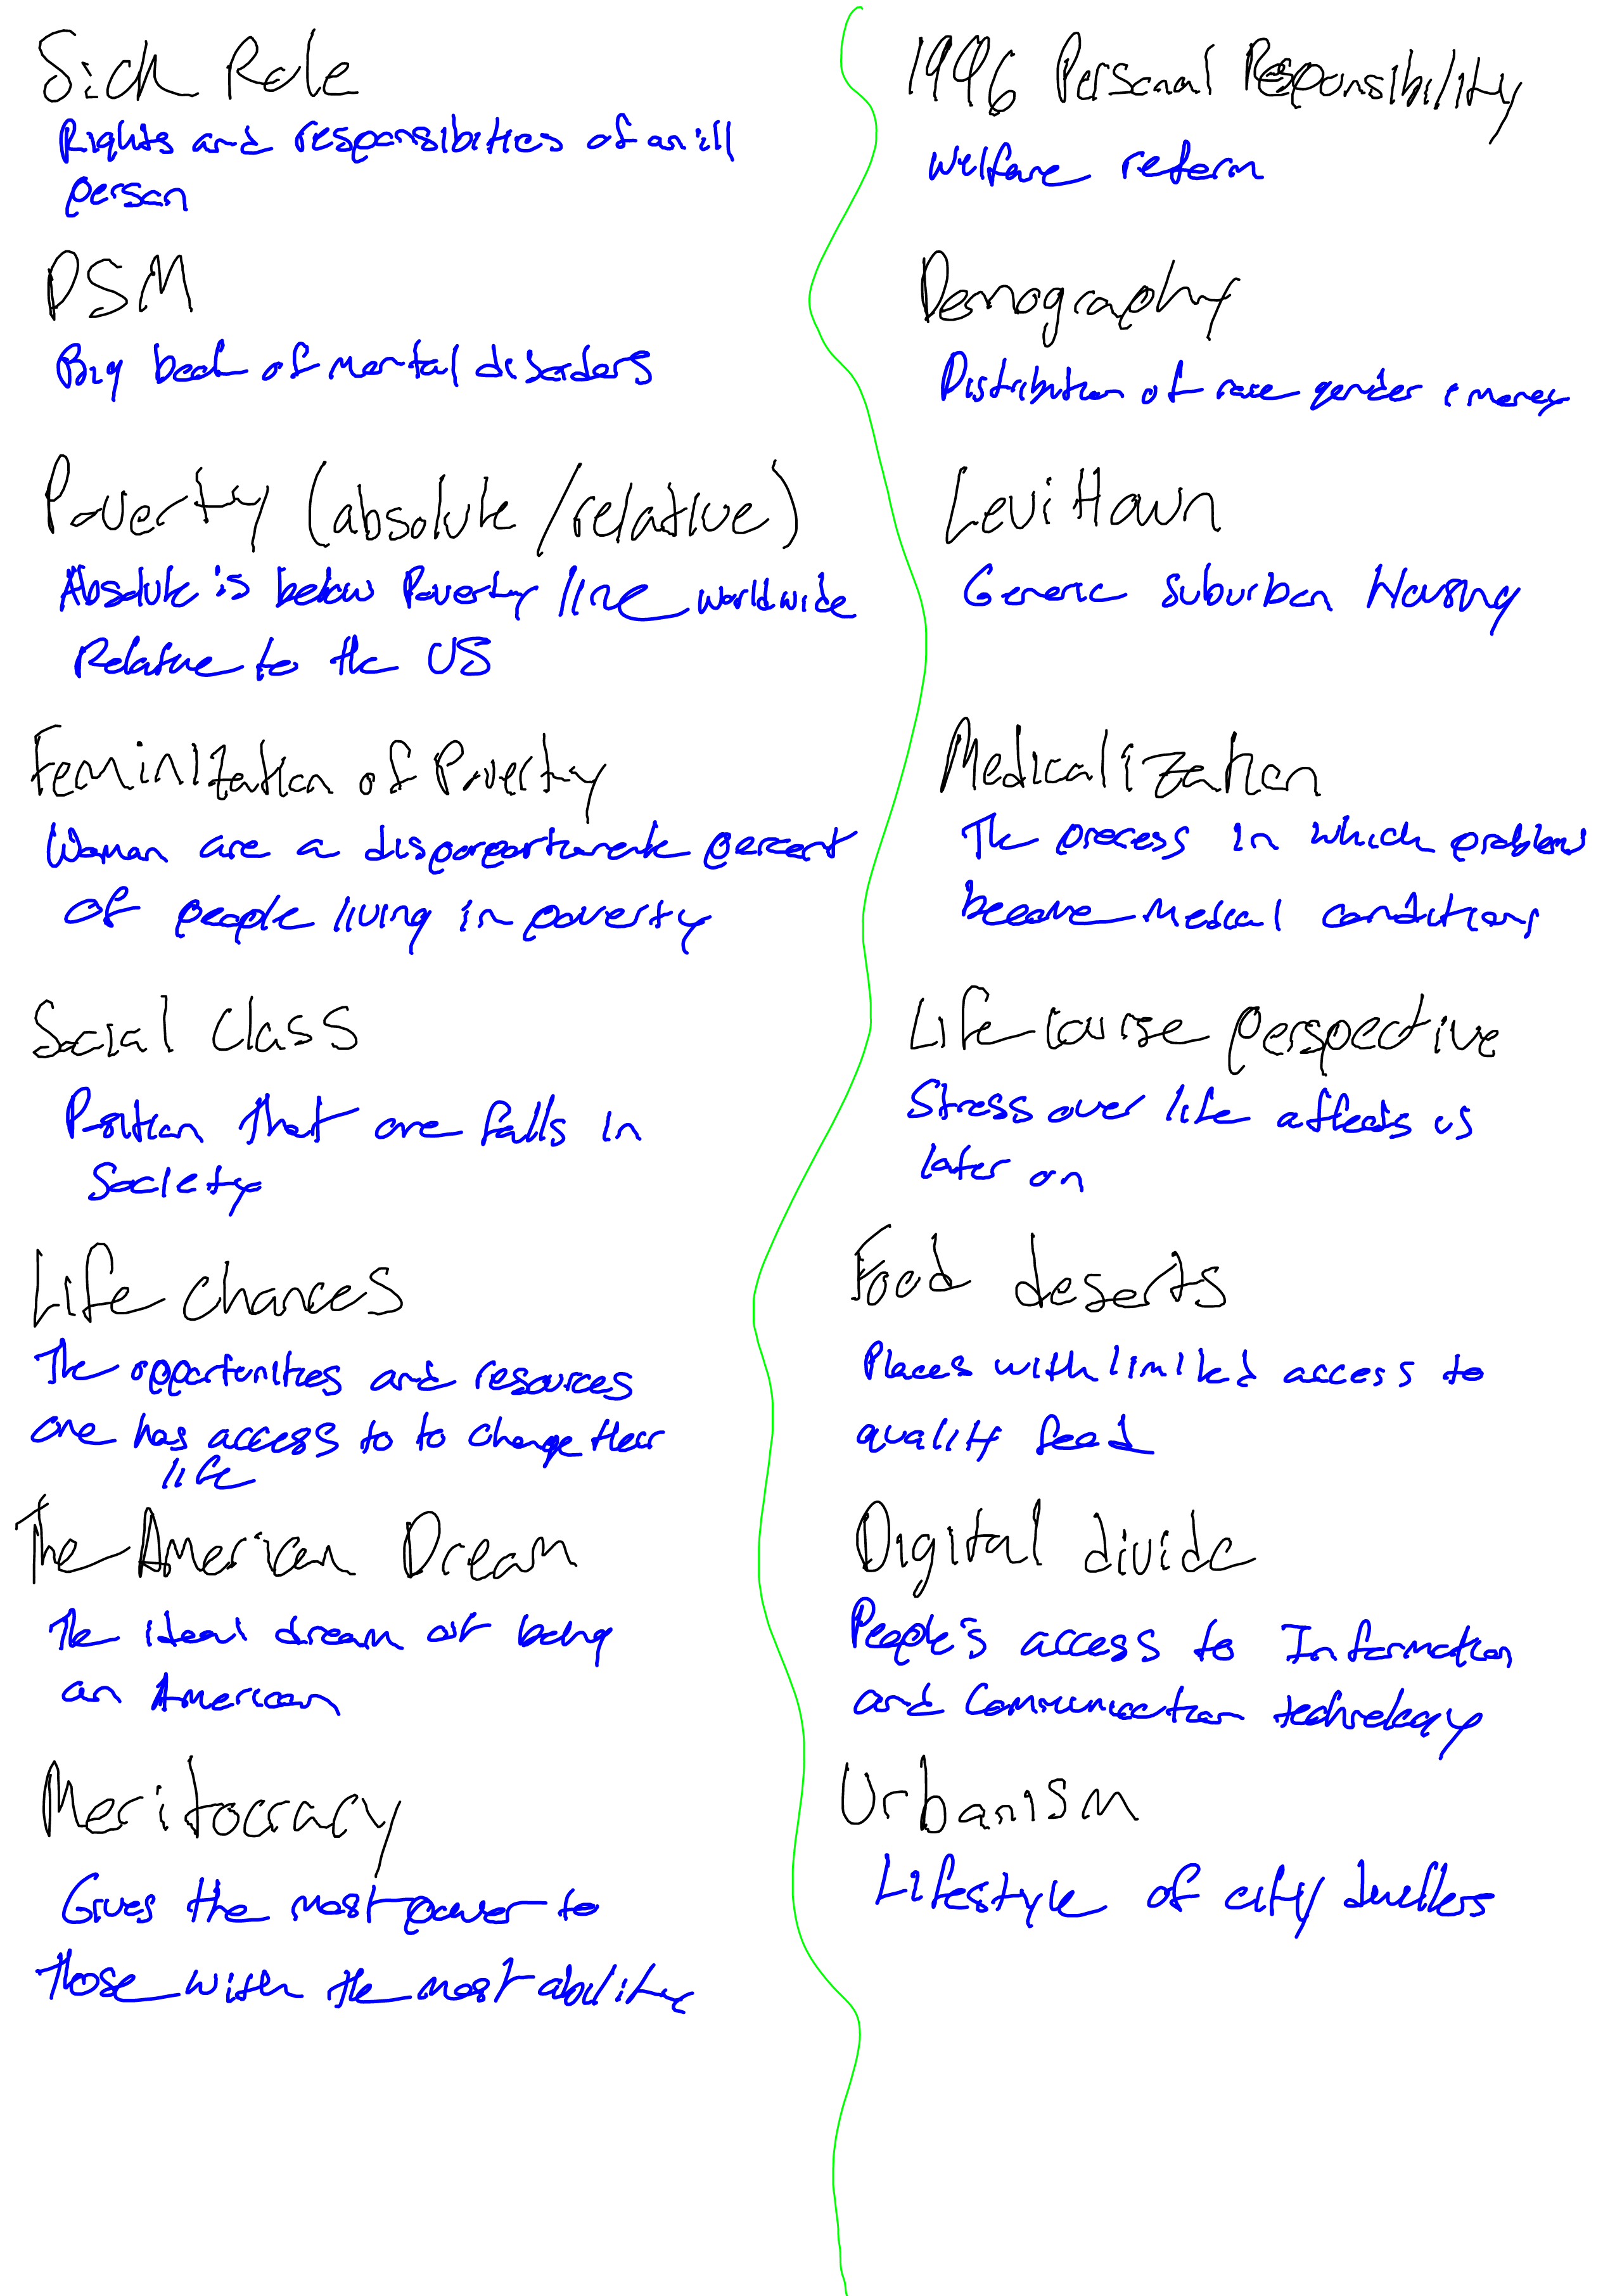 Sick Role
Rights and responsibities of an ill
person
DSM
Big book of mental disorders
Poverty (absolute/relative)
Absolute is below Poverty line worldwide
Relative to the US
Feminization of Poverty
Woman are a disporportionate percent
of people living in poverty
Social Class
Position that one falls in
Society
Life chances
The opportunities and resources
one has access to to change their
life
The American Dream
The ideal dream of being
an American
Meritocracy
Gives the most power to
those with the most ability
1996 Personal Responsibility
Welfare reform
Demography
Distribution of race gender & money
Levittown
Generic suburban Housing
Medicalization
The process in which problems
become Medical conditions
Life course perspective
Stress over life affects us
later on
Food deserts
Places with limited access to
quality food
Digital divide
People's access to Information
and Communication technology
Urbanism
Lifestyle of city dwellers